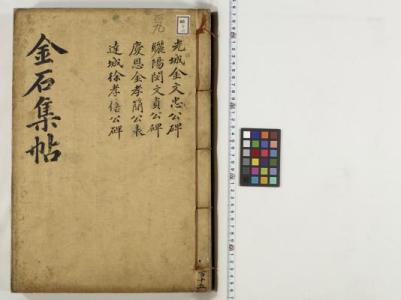 光城金文忠公碑
驪陽閔文貞公碑
慶恩金孝簡公表
達城徐孝僖公碑
金石集帖